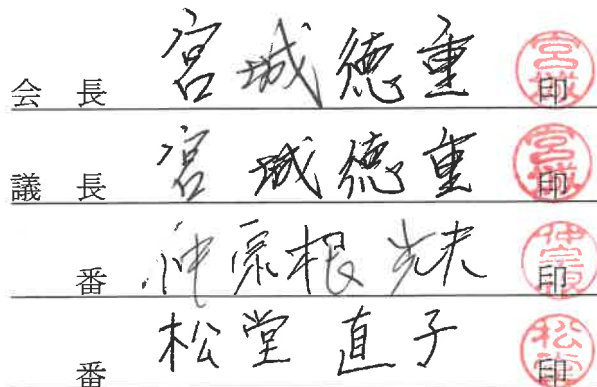 会 長 宮城徳重 印
議 長 宮城徳重 印
番 仲宗根 夫 印
番 松堂 直子 印